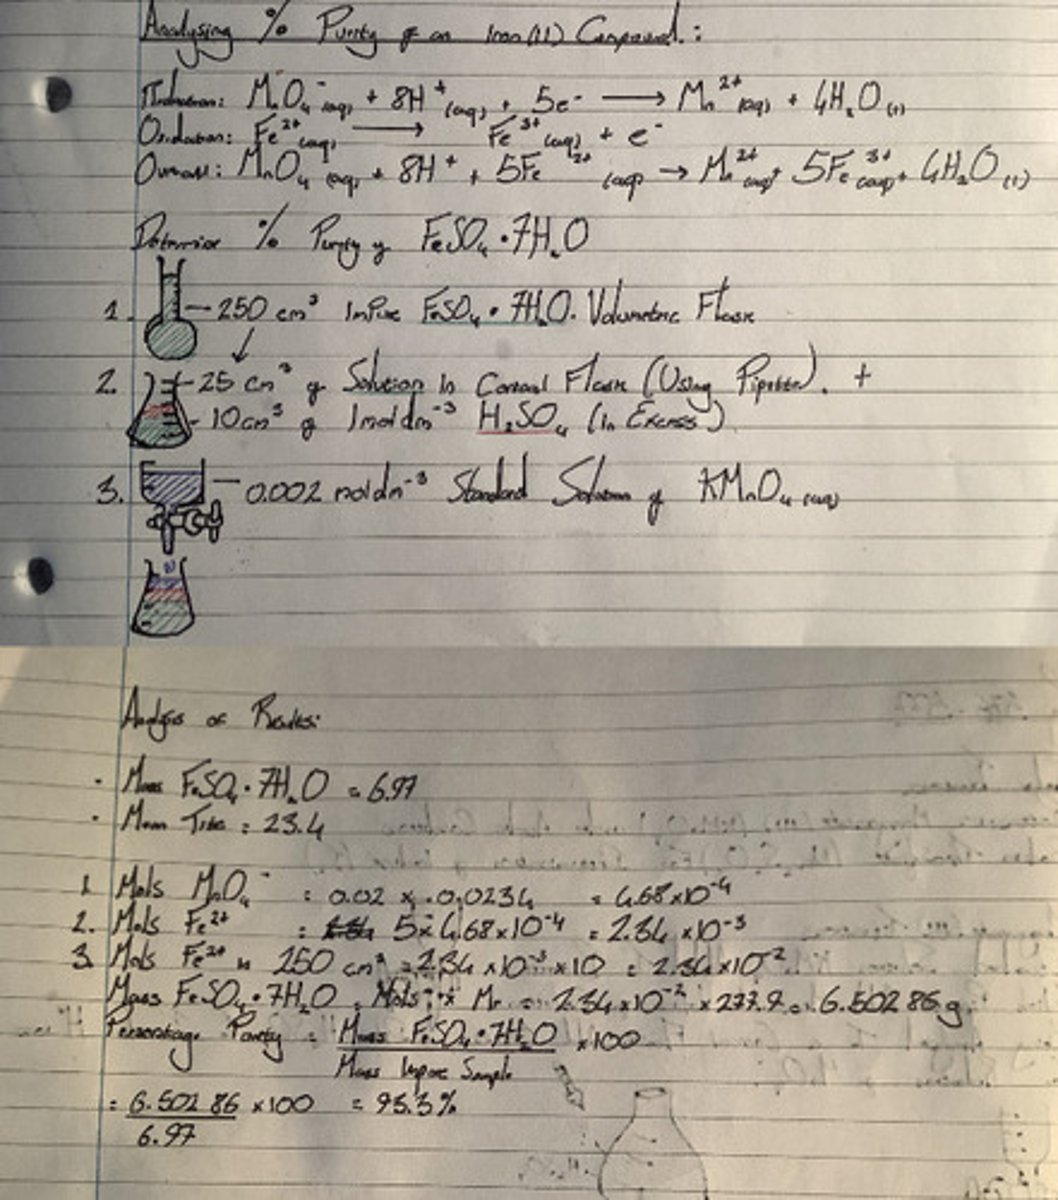 Analysing % Purity of an Iron(II) Compound:
Reduction: MnO₄⁻(aq) + 8H⁺(aq) + 5e⁻ → Mn²⁺(aq) + 4H₂O(l)
Oxidation: Fe²⁺(aq) → Fe³⁺(aq) + e⁻
Overall: MnO₄⁻(aq) + 8H⁺ + 5Fe²⁺(aq) → Mn²⁺(aq) + 5Fe³⁺(aq) + 4H₂O(l)
Determine % Purity of FeSO₄•7H₂O
1. 250 cm³ Impure FeSO₄•7H₂O. Volumetric Flask
2. 25 cm³ of Solution in Conical Flask (Using Pipette). +
10cm³ of 1moldm⁻³ H₂SO₄ (In Excess)
3. 0.002 moldm⁻³ Standard Solution of KMnO₄(aq)
Analysis of Results:
- Mass FeSO₄•7H₂O = 6.97
- Mean Titre = 23.4
1. Mols MnO₄⁻ = 0.02 × 0.0234 = 4.68×10⁻⁴
2. Mols Fe²⁺ = 5×4.68×10⁻⁴ = 2.34×10⁻³
3. Mols Fe²⁺ in 250 cm³ = 2.34×10⁻³×10 = 2.34×10⁻²
Mass FeSO₄•7H₂O = Mols × Mr = 2.34×10⁻² ×277.9 = 6.50286g
Percentage Purity = Mass FeSO₄•7H₂O ×100
Mass Impure Sample
= 6.50286 ×100 = 93.3%
6.97